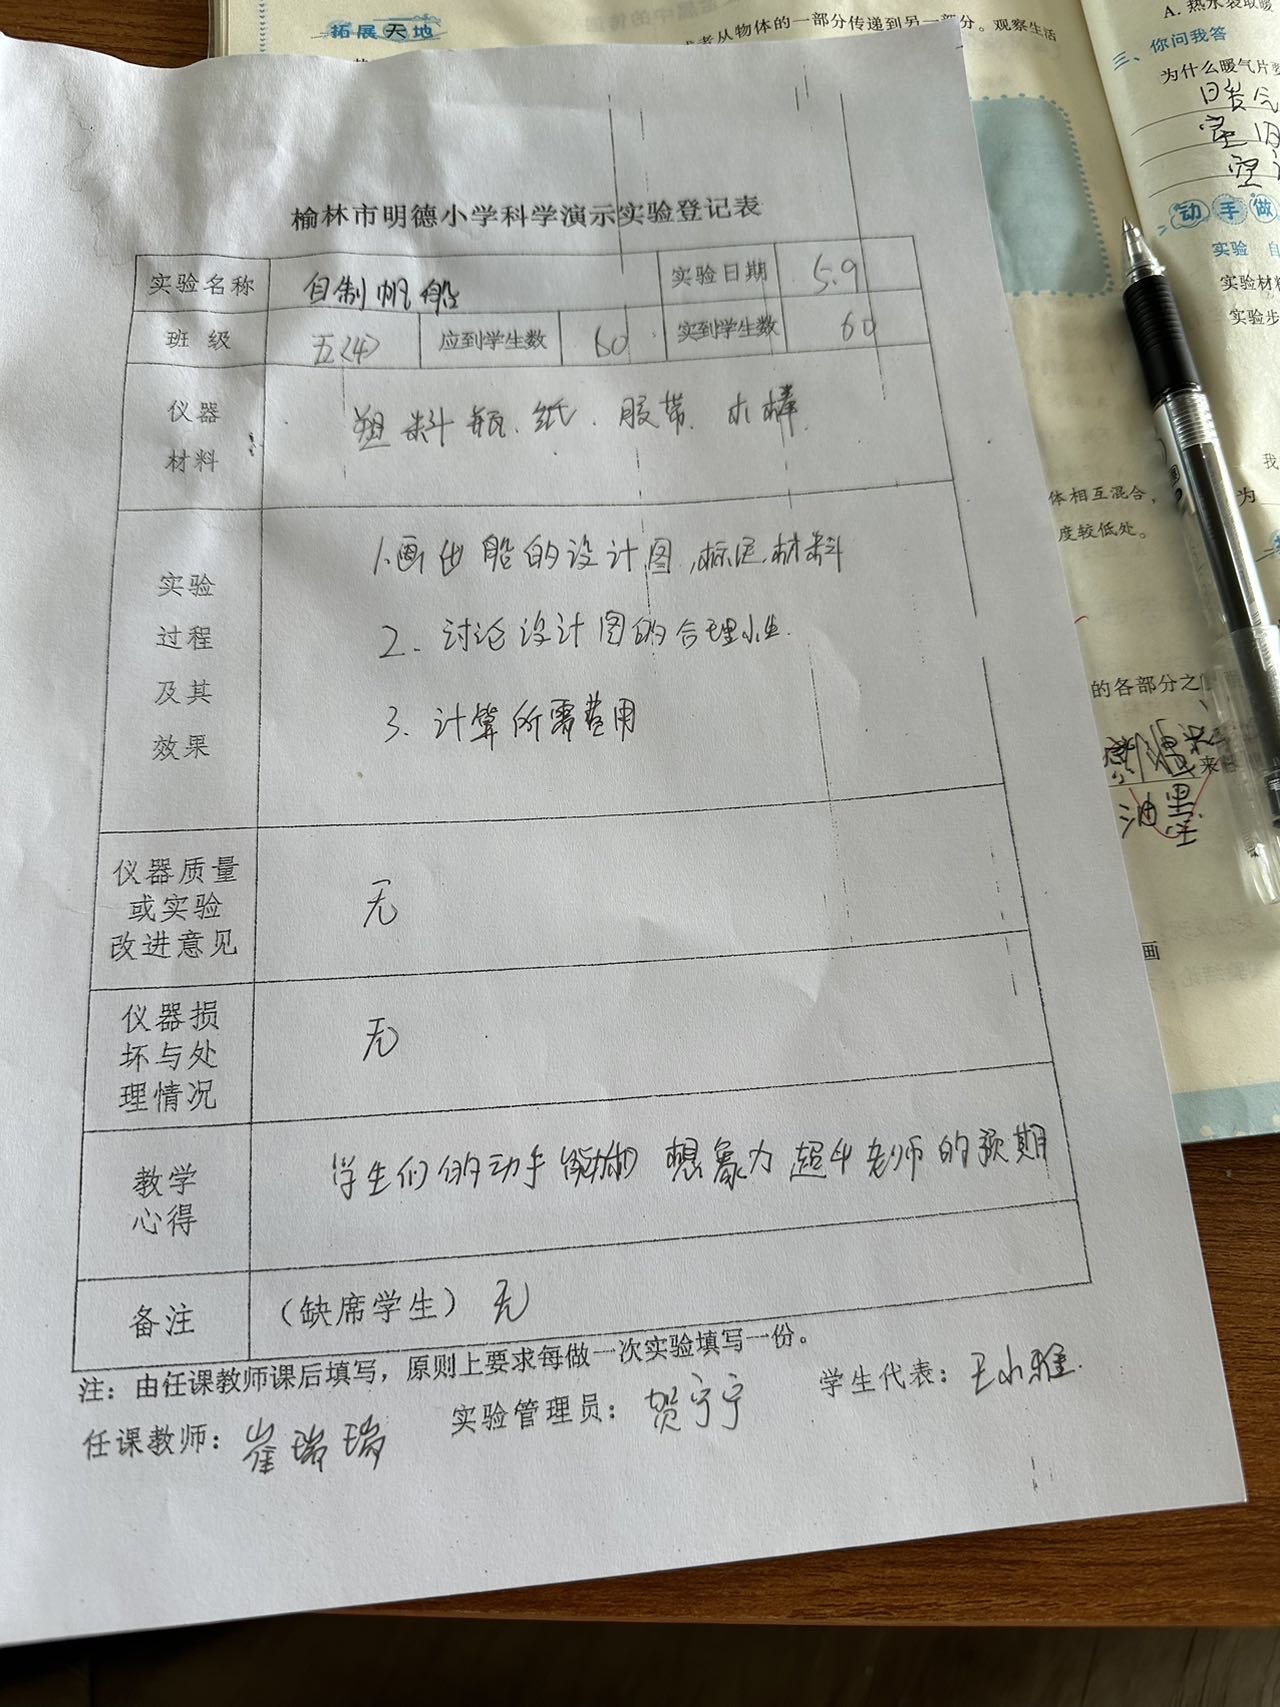 拓展天地
或者从物体的一部分传递到另一部分。观察生活
A. 热水袋取暖
三、你问我答
为什么暖气片
动手做
实验
实验材料
实验步
体相互混合，
度较低处。
为
的各部分之
来
油墨
画
榆林市明德小学科学演示实验登记表
实验名称 自制帆船 实验日期 5.9
班 级 五(4) 应到学生数 60 实到学生数 60
仪器
材料
塑料瓶、纸、胶带、木棒
实验
过程
及其
效果
1.画出船的设计图,标注材料
2. 讨论设计图的合理性.
3. 计算所需费用
仪器质量
或实验
改进意见
无
仪器损
坏与处
理情况
无
教学
心得
学生们的动手能力和想象力超乎老师的预期
备注 （缺席学生） 无
注：由任课教师课后填写，原则上要求每做一次实验填写一份。
任课教师：崔瑞瑞 实验管理员：贺宁宁 学生代表：王小雅.